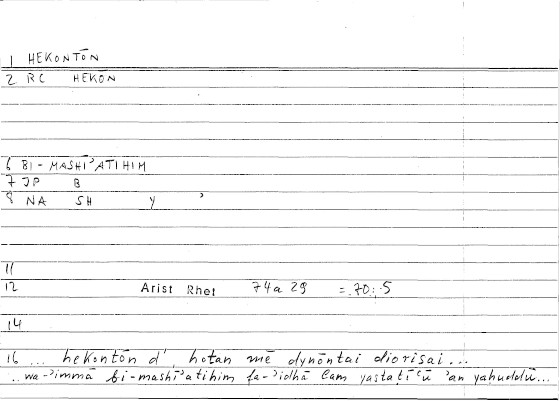 1 HEKONTŌN
2 RC HEKŌN
6 BI-MASHĪʾATIHIM
7 JP B
8 NA SH Y ʾ
11
12 Arist Rhet 74a 29 = 70:5
14
16 ... hekontōn d', hotan mē dynōntai diorisai...
..wa-ʾimmā bi-mashīʾatihim fa-ʾidhā lam yastaṭīʿū ʾan yahuddū...